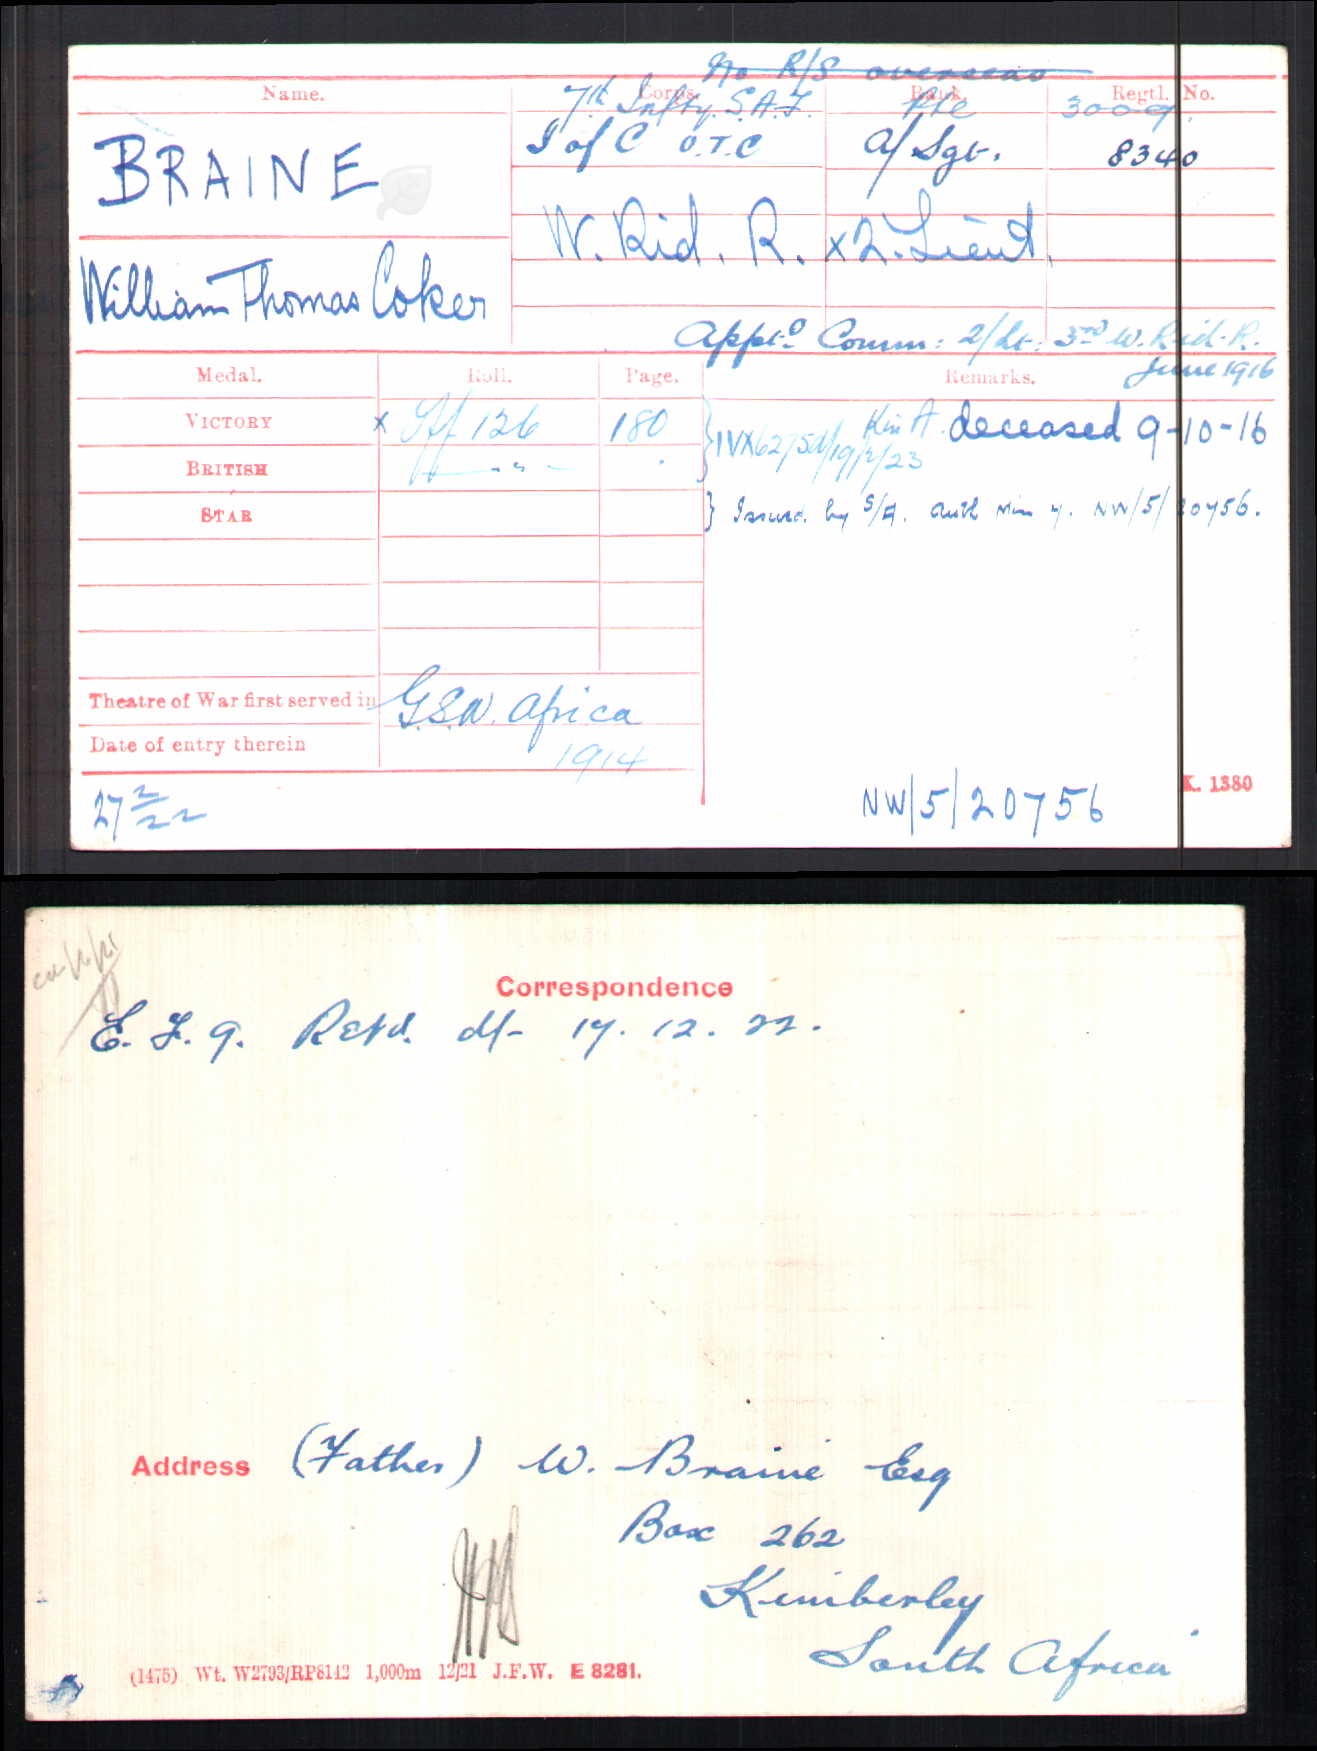 No R/S overseas
Name. Corps. Rank. Regtl. No.
7th Infty. S.A.F. Pte 3009.
BRAINE
I of C O.T.C A/Sgt. 8340
W. Rid. R. x2.Lieut.
William Thomas Coker
Apptd Comm: 2/Lt: 3rd W. Rid. R.
June 1916
Medal. Roll. Page. Remarks.
VICTORY x Off 126 180 Kin A. deceased 9-10-16
BRITISH - " - IVX62/5M/19/2/23
STAR Issued by S/A. auth NW/5/20756.
Theatre of War first served in G.S.W. Africa
Date of entry therein 1914
27 2/22
NW/5/20756
K. 1380
Correspondence
E.F.9. Retd. d/- 17.12.22.
Address (Father) W. Braine Esq
Box 262
Kimberley
South Africa
(1475) Wt. W2793/RP8142 1,000m 12/21 J.F.W. E 8281.